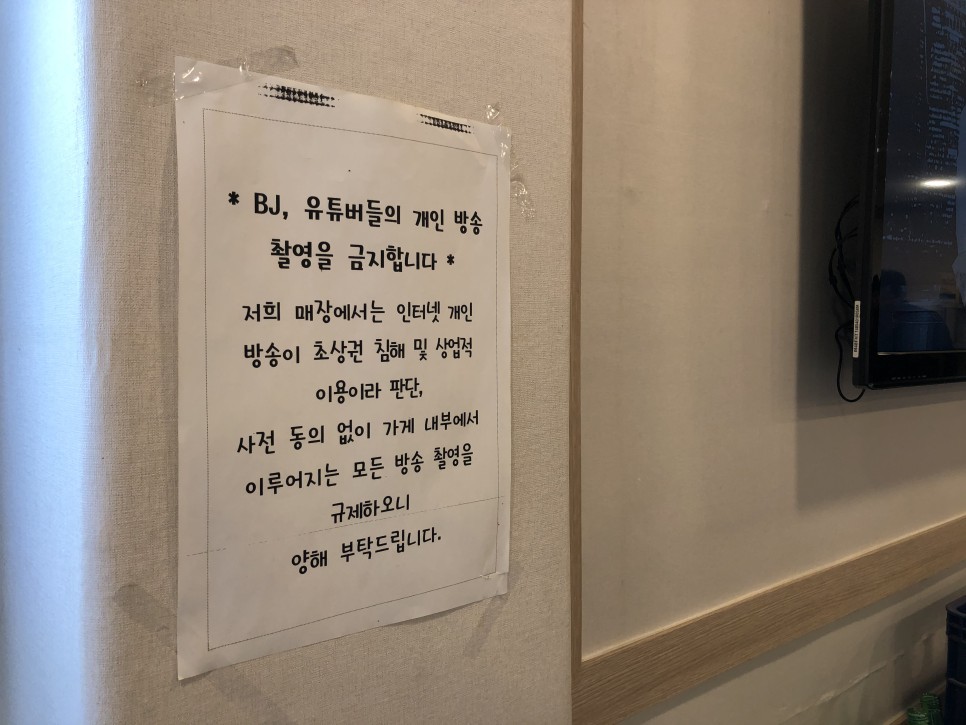 * BJ, 유튜버들의 개인 방송
촬영을 금지합니다 *
저희 매장에서는 인터넷 개인
방송이 초상권 침해 및 상업적
이용이라 판단,
사전 동의 없이 가게 내부에서
이루어지는 모든 방송 촬영을
규제하오니
양해 부탁드립니다.